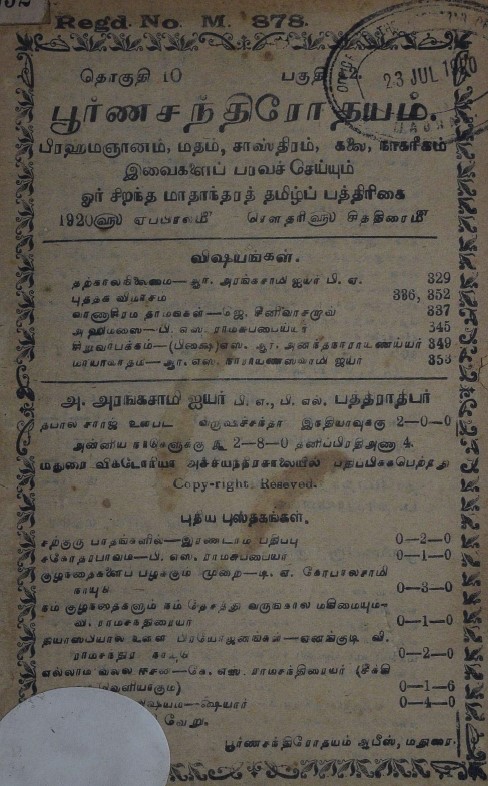 Regd. No. M. 878.
23 JUL 1920
தொகுதி 10 பகுதி
பூர்ணசந்திரோதயம்.
பிரஹ்மஞானம், மதம், சாஸ்திரம், கலை, நாகரீகம்
இவைகளைப் பரவச் செய்யும்
ஓர் சிறந்த மாதாந்தரத் தமிழ்ப் பத்திரிகை
1920௵ ஏப்ரல்௴ ரௌதரி௵ சித்திரை௴
விஷயங்கள்.
தற்காலநிலைமை—ஆர். அரங்கசாமி ஐயர் பி. ஏ. 329
புத்தக விமர்சம் 336, 352
வாணாசிரம தர்மங்கள்—ஜெ. சீனிவாசராவ் 337
அஹிம்ஸை—பி. எஸ். ராமசுப்பைய்யர் 345
திருவாசகம்—(பிக்ஷு) எஸ். ஆர். அனந்தநாராயணய்யர் 349
மாயாவாதம்—ஆர். எஸ். நாராயணஸ்வாமி ஐயர் 353
அ. அரங்கசாமி ஐயர் பி. ஏ., பி. எல். பத்திராதிபர்
தபால் சார்ஜ் உள்பட வருஷசந்தா இந்தியாவுக்கு 2—0—0
அன்னிய நாடுகளுக்கு ரூ 2—8—0 தனிப்பிரதி அணா 4.
மதுரை விக்டோரியா அச்சியந்திரசாலையில் பதிப்பிக்கபெற்றது
Copy-right. Reseved.
புதிய புஸ்தகங்கள்.
சற்குரு பாதங்களில்—இரண்டாம் பதிப்பு 0—2—0
சகோதரபாவம்—பி. எஸ். ராமசுப்பையர் 0—1—0
குழந்தைகளைப் பழக்கும் முறை—டி. ஏ. கோபாலசாமி
நாயுடு 0—3—0
நம் குழந்தைகளும் நம் தேசத்து வருங்கால மகிமையும்—
வி. ராமசந்திரையர் 0—1—0
தியாஸபியால் உள்ள பிரயோஜனங்கள்—ஏனங்குடி வி.
0—2—0
எல்லாம் வல்ல ஈசன்—கே. எஸ். ராமசந்திரையர் (சீக்கி
வெளியாகும்) 0—1—6
0—4—0
வேறு.
பூர்ணசந்திரோதயம் ஆபீஸ், மதுரை.